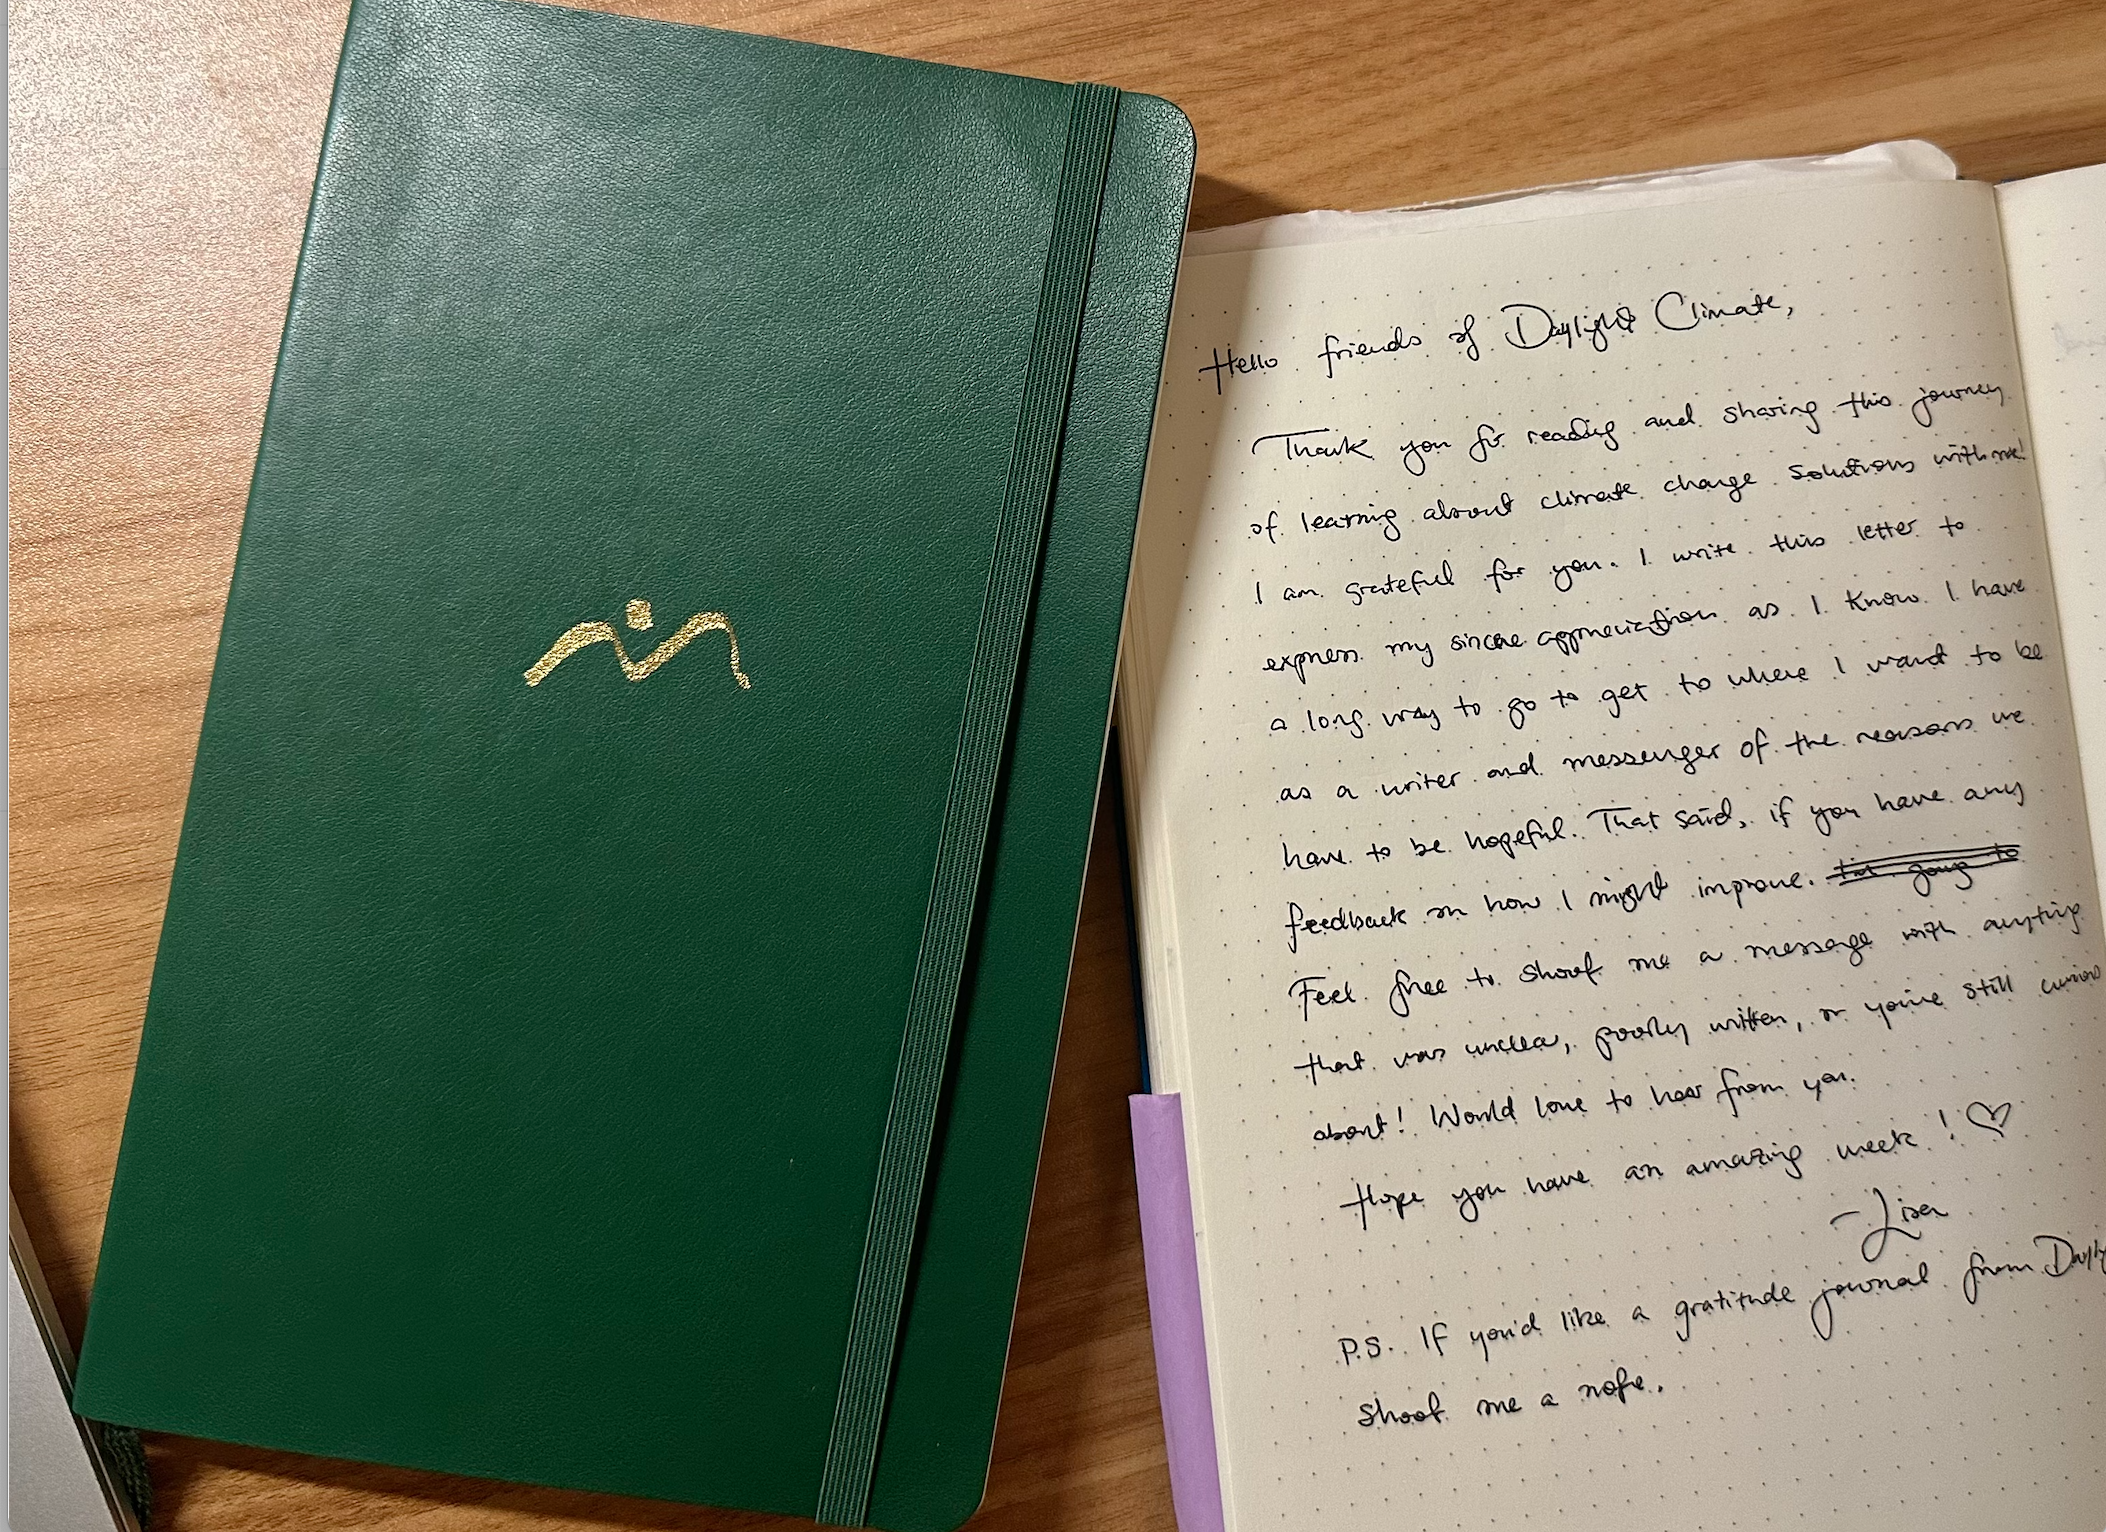 Hello friends of Daylight Climate,
Thank you for reading and sharing this journey
of learning about climate change solutions with me!
I am grateful for you. I write this letter to
express my sincere appreciation as I know I have
a long way to go to get to where I want to be
as a writer and messenger of the reasons we
have to be hopeful. That said, if you have any
feedback on how I might improve. I'm going to
Feel free to shoot me a message with anything
that was unclear, poorly written, or you're still curious
about! Would love to hear from you.
Hope you have an amazing week! ♡
- Lisa
P.S. If you'd like a gratitude journal from Dayl
shoot me a note.